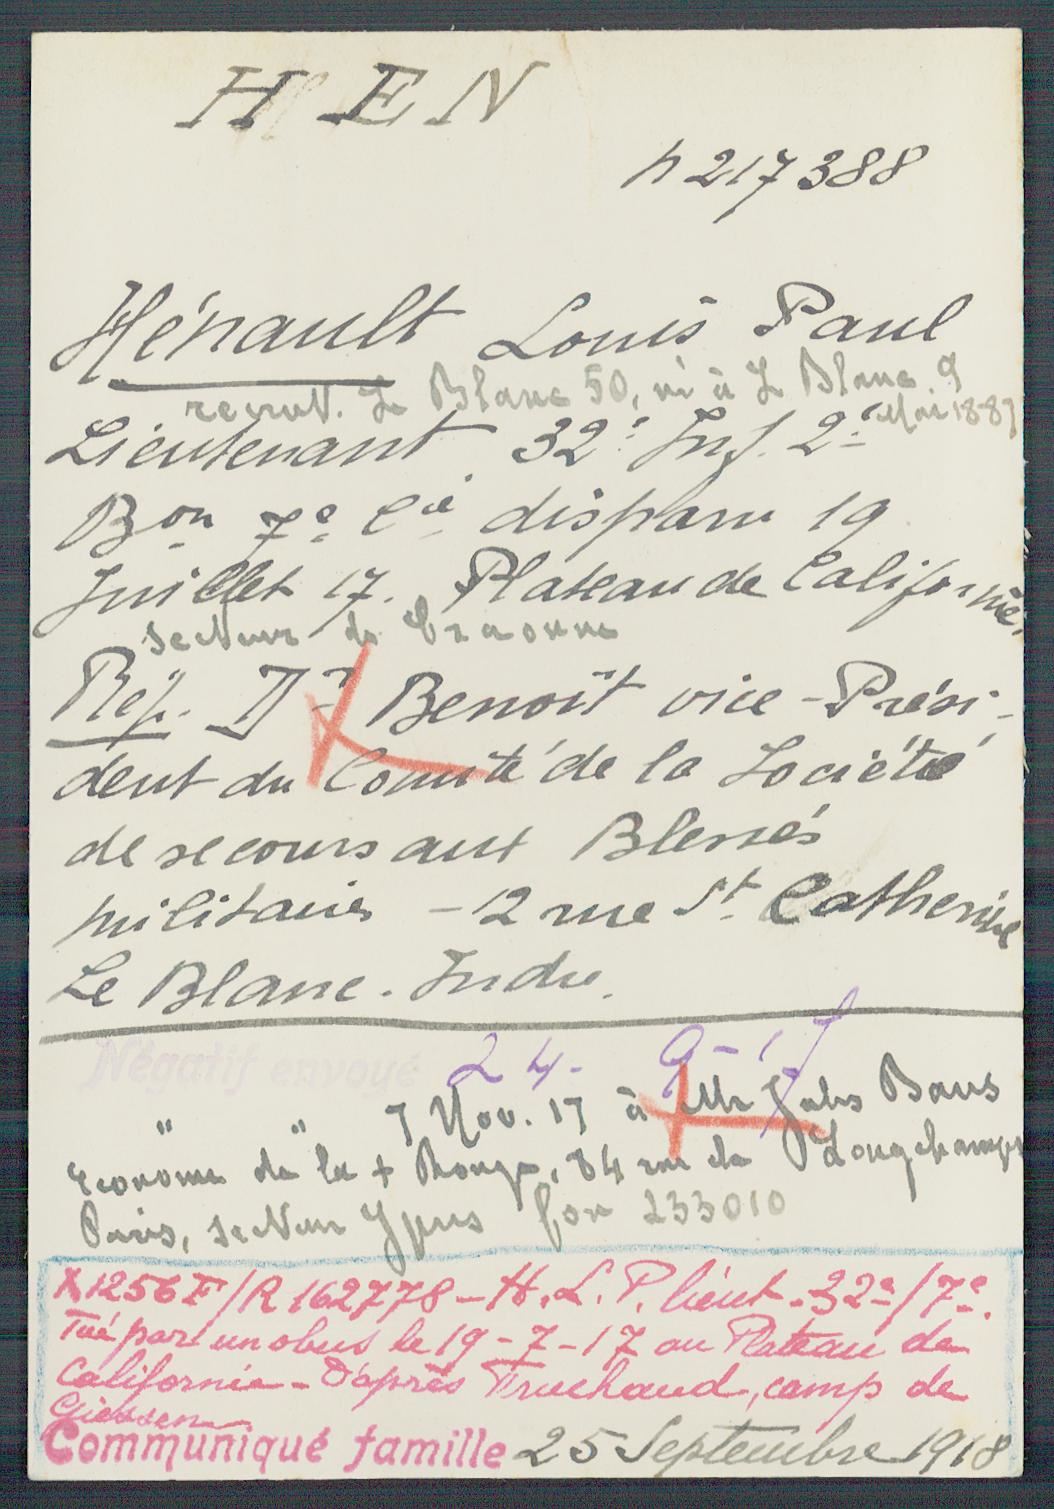 HEN
h 217388
Hénault Louis Paul
recrut. Le Blanc 50, né à Le Blanc. 9
Mai 1887
Lieutenant 32e Inf. 2e
Bon 7e Cie disparu 19
Juillet 17. Plateau de Californie,
secteur de Craonne
Rép. Dr Benoît vice-Prési-
dent du Comité de la Société
de secours aux Blessés
militaires - 12 rue St. Catherine
Le Blanc. Indre.
Négatif envoyé 24-9-17
" " 7 Nov. 17 à Mr Jules Baus
économe de la + Rouge, 84 rue de Longchamps
Paris, secteur Ypres Con 233010
X 1256 F/R 162778 - H. L. P. lieut. 32e/7e.
Tué par un obus le 19-7-17 au Plateau de
Californie - D'après Truchaud, camp de
Giessen
Communiqué famille 25 Septembre 1918